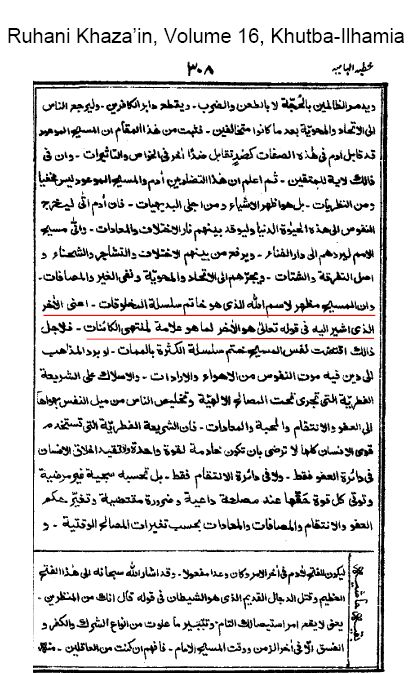 Ruhani Khaza'in, Volume 16, Khutba-Ilhamia
خطبه الهاميه ٣٠٨
ويدمر الظالمين بالحجّة لا بالطعن والضرب۔ ويقطع دابر الكافرين۔ وليرجع الناس
الى الاتحاد والمحويّة بعد ما كانوا متخالفين۔ فثبت من هذا المقام ان المسيح الموعود
قد قابل آدم فى هذه الصفات كضدٍ تقابل ضدًّا آخر فى الخواص والتاثيرات۔ وان فى
ذالك لاية للمتقين۔ ثم اعلم ان هذا التضاد بين آدم والمسيح الموعود ليس مخفيا
ومن النظريات۔ بل هو اظهر الاشياء ومن اجلى البديهيات۔ فان آدم اتى ليخرج
النفوس الى هذه الحيوة الدنيا وليوقد بينهم نار الاختلاف والمعادات۔ واتى مسيح
الامم ليردهم الى دار الفناء۔ ويرفع من بينهم الاختلاف والتشاجر والشحناء و
اصل التفرقة والشتات۔ ويجرّهم الى الاتحاد والمحويّة ونفى الغير والمصافات۔
وان المسيح مظهر لاسم الله الذى هو خاتم سلسلة المخلوقات۔ اعنى الآخر
الذى اشير اليه فى قوله تعالىٰ هو الآخر لما هو علامة لمنتهى الكائنات۔ فلاجل
ذالك اقتضت نفس المسيح ختم سلسلة الكثرة بالممات۔ او برد المذاهب
الى دين فيه موت النفوس من الاهواء والارادات۔ والاسلاك على الشريعة
الفطريّة التى تجرى تحت المصالح الالهيّة وتخليص الناس من ميل النفس بهواها
الى العفو والانتقام والمحبة والمعادات۔ فان الشريعة الفطريّة التى تستخدم
قوى الانسان كلها لا ترضى بان تكون خادمة لقوة واحدة ولا تقيد اخلاق الانسان
فى دائرة العفو فقط۔ ولا فى دائرة الانتقام فقط۔ بل تحسبه سجيّة غير مرضية
وتؤتى كل قوة حقّها عند مصلحة داعية وضرورة مقتضية وتغيّر حكم
العفو والانتقام والمصافات والمعادات بحسب تغيرات المصالح الوقتية۔ و
ليكون الفتح لآدم فى آخر الامر وكان وعدا مفعولا۔ وقد اشار الله سبحانه الى هذا الفتح
العظيم وقتل الدجال القديم الذى هو الشيطان فى قوله قال انك من المنظرين۔
يعنى لا يقع امر استيصالك التام۔ وتتبير ما علوت من انواع الشرك والكفر و
الفسق الّا فى آخر الزمن ووقت المسيح الامام۔ فافهم ان كنت من العاقلين۔ منه
بقيه حاشيه